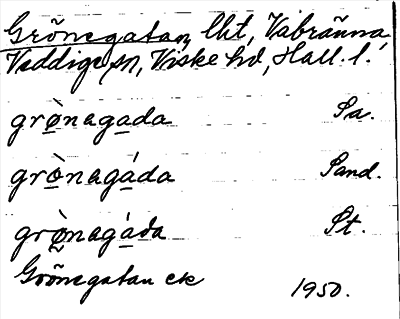 Grönegatan, lht, Vabränna
Veddige sn, Viske hd, Hall. l.
grø̀nagada Sa.
grø̀nagáda Sand.
grø̀nagáda St.
Grönegatan ek
1950.